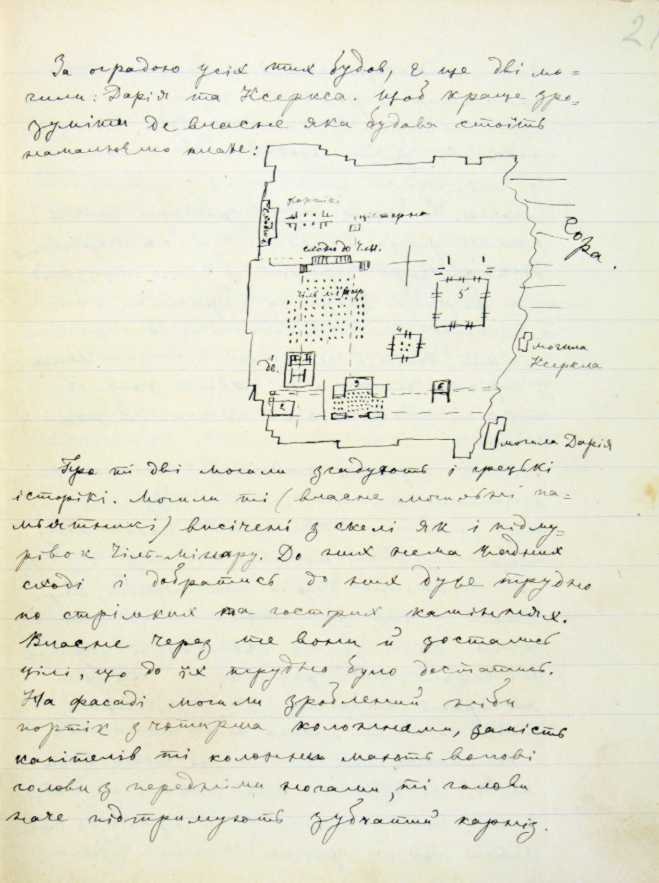 21
За оградою усіх тих будов, є ще дві мо=
гили: Дарія та Ксеркса. Щоб краще зро-
зуміти де власне яка будова стоїть
намалюємо план:
портік
цістерна
сходи до Ч.М.
Чіль мінар
Гора.
5
4
3
2
могила
Ксеркса
могила Дарія
Про ті дві могили згадують і грецькі
історікі. Могили ті (власне могильні па=
мьятникі) висічені з скелі як і підму-
рівок Чіль-мінару. До них нема жадних
сході і добратись до них дуже трудно
по стрімких та гострих каміннях.
Власне через те вони й зостались
цілі, що до їх трудно було достатись.
На фасаді могили зроблений ніби
портік з чотирма колоннами, замість
капітелів ті колонни мають волові
голови з передніми ногами, ті голови
наче підтримують зубчатий карніз.